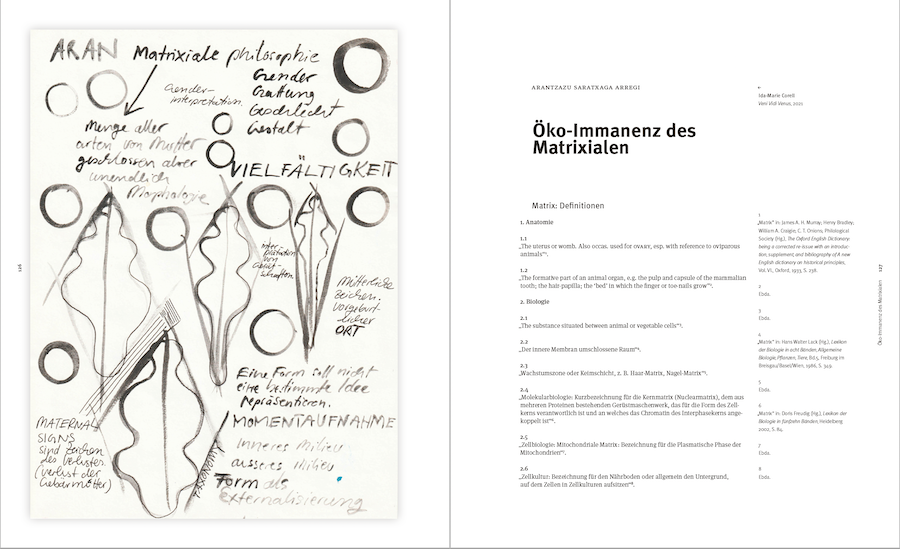 ARAN Matrixiale philosophie
Gender
Gattung
Geschlecht
Gestalt
Gender-
interpretation
Menge aller
arten von Mutter
geschlossen aber
unendlich
Morphologie
VIELFÄLTIGKEIT
inter-
pretation
von
Mütterliche
Zeichen.
vorgeburt-
licher
ORT
Eine Form soll nicht
eine bestimmte Idee
repräsentieren.
MOMENTAUFNAHME
MATERNAL
SIGNS
sind zeichen
des verlustes
(verlust der
Gebärmutter)
inneres milieu
äusseres milieu
TAXONOMY
Form als
externalisierung
126
ARANTZAZU SARATXAGA ARREGI
Öko-Immanenz des
Matrixialen
Ida-Marie Corell
Veni Vidi Venus, 2021
Matrix: Definitionen
1. Anatomie
1.1
„The uterus or womb. Also occas. used for OVARY, esp. with reference to oviparous
animals“¹.
1.2
„The formative part of an animal organ, e.g. the pulp and capsule of the mammalian
tooth; the hair-papilla; the ‘bed’ in which the finger or toe-nails grow“².
2. Biologie
2.1
„The substance situated between animal or vegetable cells“³.
2.2
„Der innere Membran umschlossene Raum“⁴.
2.3
„Wachstumszone oder Keimschicht, z. B. Haar-Matrix, Nagel-Matrix“⁵.
2.4
„Molekularbiologie: Kurzbezeichnung für die Kernmatrix (Nuclearmatrix), dem aus
mehreren Proteinen bestehenden Gerüstmaschenwerk, das für die Form des Zell-
kerns verantwortlich ist und an welches das Chromatin des Interphasekerns ange-
koppelt ist“⁶.
2.5
„Zellbiologie: Mitochondriale Matrix: Bezeichnung für die Plasmatische Phase der
Mitochondrien“⁷.
2.6
„Zellkultur: Bezeichnung für den Nährboden oder allgemein den Untergrund,
auf dem Zellen in Zellkulturen aufsitzen“⁸.
1
„Matrix“ in: James A. H. Murray; Henry Bradley;
William A. Craigie; C. T. Onions, Philological
Society (Hg.), The Oxford English Dictionary:
being a corrected re-issue with an introduc-
tion, supplement, and bibliography of A new
English dictionary on historical principles,
Vol. VI., Oxford, 1933, S. 238.
2
Ebda.
3
Ebda.
4
„Matrix“ in: Hans Walter Lack (Hg.), Lexikon
der Biologie in acht Bänden, Allgemeine
Biologie, Pflanzen, Tiere, Bd.5, Freiburg im
Breisgau/Basel/Wien, 1986, S. 349.
5
Ebda.
6
„Matrix“ in: Doris Freudig (Hg.), Lexikon der
Biologie in fünfzehn Bänden, Heidelberg
2002, S. 84.
7
Ebda.
8
Ebda.
127
Öko-Immanenz des Matrixialen